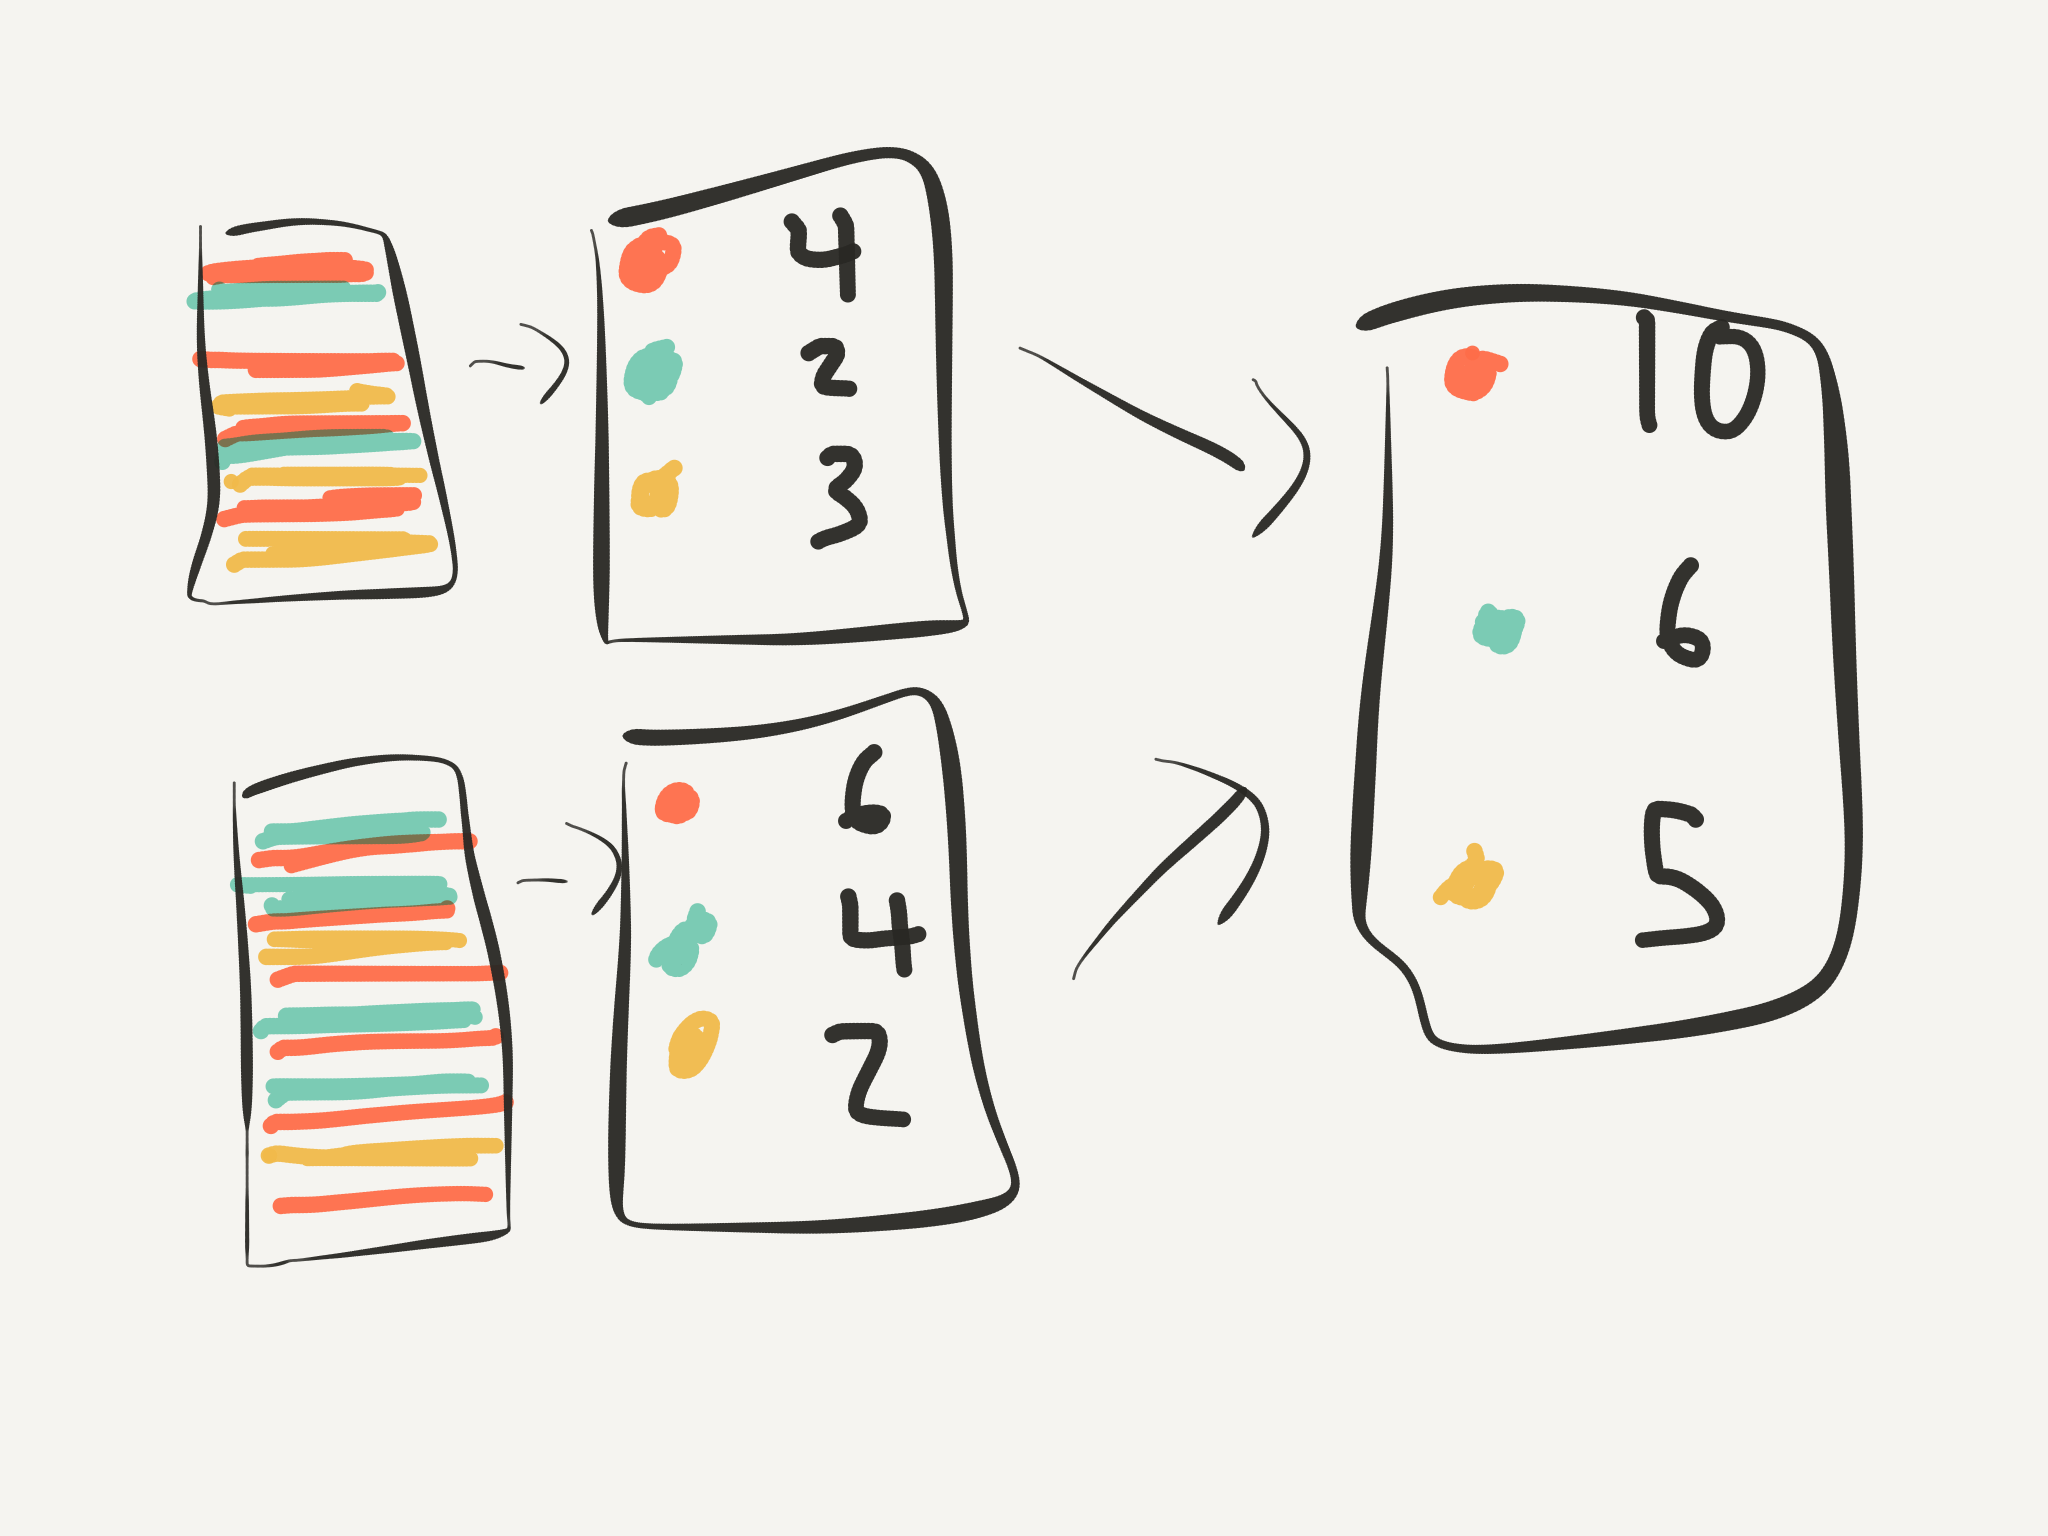 4
2
3
6
4
2
10
6
5